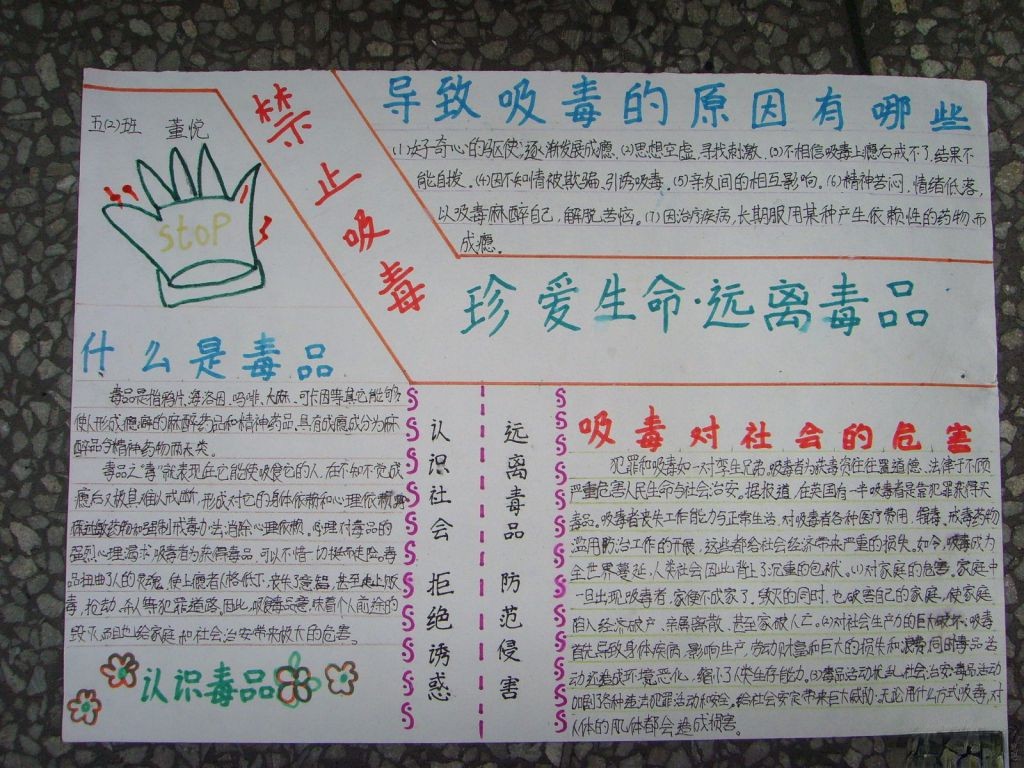 五(2)班 董悦
stop
禁止吸毒
导致吸毒的原因有哪些
(1)好奇心的驱使逐渐发展成瘾,(2)思想空虚,寻找刺激,(3)不相信吸毒上瘾后戒不了,结果不
能自拔。(4)因不知情被欺骗,引诱吸毒。(5)亲友间的相互影响。(6)精神苦闷,情绪低落,
以吸毒麻醉自己,解脱苦恼。(7)因治疗疾病,长期服用某种产生依赖性的药物而
成瘾。
珍爱生命·远离毒品
什么是毒品
毒品是指鸦片,海洛因,吗啡,大麻,可卡因等其它能够
使人形成瘾癖的麻醉药品和精神药品,具有成瘾成分为麻
醉品与精神药物两大类。
毒品之"毒"就表现在它能使吸食它的人,在不知不觉成
瘾后又极其难以戒断,形成对它的身体依赖和心理依赖,
药物和强制戒毒办法,消除心理依赖。心理对毒品的
强烈心理渴求吸毒者为获得毒品,可以不惜一切铤而走险。毒
品扭曲了人的灵魂,使上瘾者人格低下,丧失了意智,甚至走上贩
毒,抢劫,杀人等犯罪道路,因此,吸食毒品意味着个人前程的
毁灭而且也给家庭和社会治安带来极大的危害。
认识毒品
认识社会 拒绝诱惑
远离毒品 防范侵害
吸毒对社会的危害
犯罪和吸毒如一对孪生兄弟,吸毒者为获毒资往往置道德、法律于不顾
严重危害人民生命与社会治安。据报道,在英国有一半吸毒者是靠犯罪获得买
毒品。吸毒者丧失工作能力与正常生活,对吸毒者各种医疗费用,缉毒,戒毒药物
滥用防治工作的开展,这些都给社会经济带来严重的损失。如今,吸毒成为
全世界蔓延,人类社会因此背上了沉重的包袱。(1)对家庭的危害。家庭中
一旦出现吸毒者,家便不成家了。毁灭的同时,也破害自己的家庭,使家庭
陷入经济破产,亲属离散,甚至家破人亡。(2)对社会生产力的巨大破坏:吸毒
首先导致身体疾病,影响生产,劳动财富和巨大的损失和浪费,同时毒品活
动还造成环境恶化,缩小了人类生存能力。(3)毒品活动扰乱社会治安:毒品活动
加剧了各种违法犯罪活动和安全。给社会安定带来巨大威胁。无论用什么方式吸毒,对
人体的肌体都会造成损害。